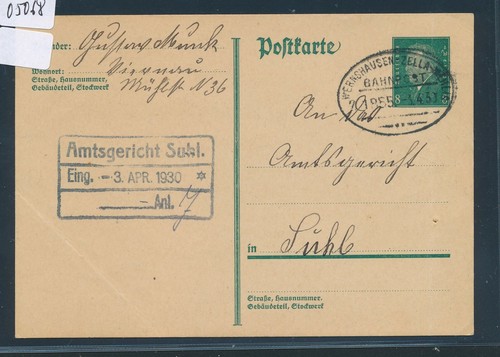 05058
Absender: Gustav Munk
Wohnort: Viernau
Straße, Hausnummer,
Gebäudeteil, Stockwerk
Mühlst N 36
Postkarte
WERNSHAUSEN-ZELLA-
BAHNPOST
8
An das
Amtsgericht
in Suhl
Straße, Hausnummer,
Gebäudeteil, Stockwerk
Amtsgericht Suhl.
Eing. - 3. APR. 1930 *
Anl.